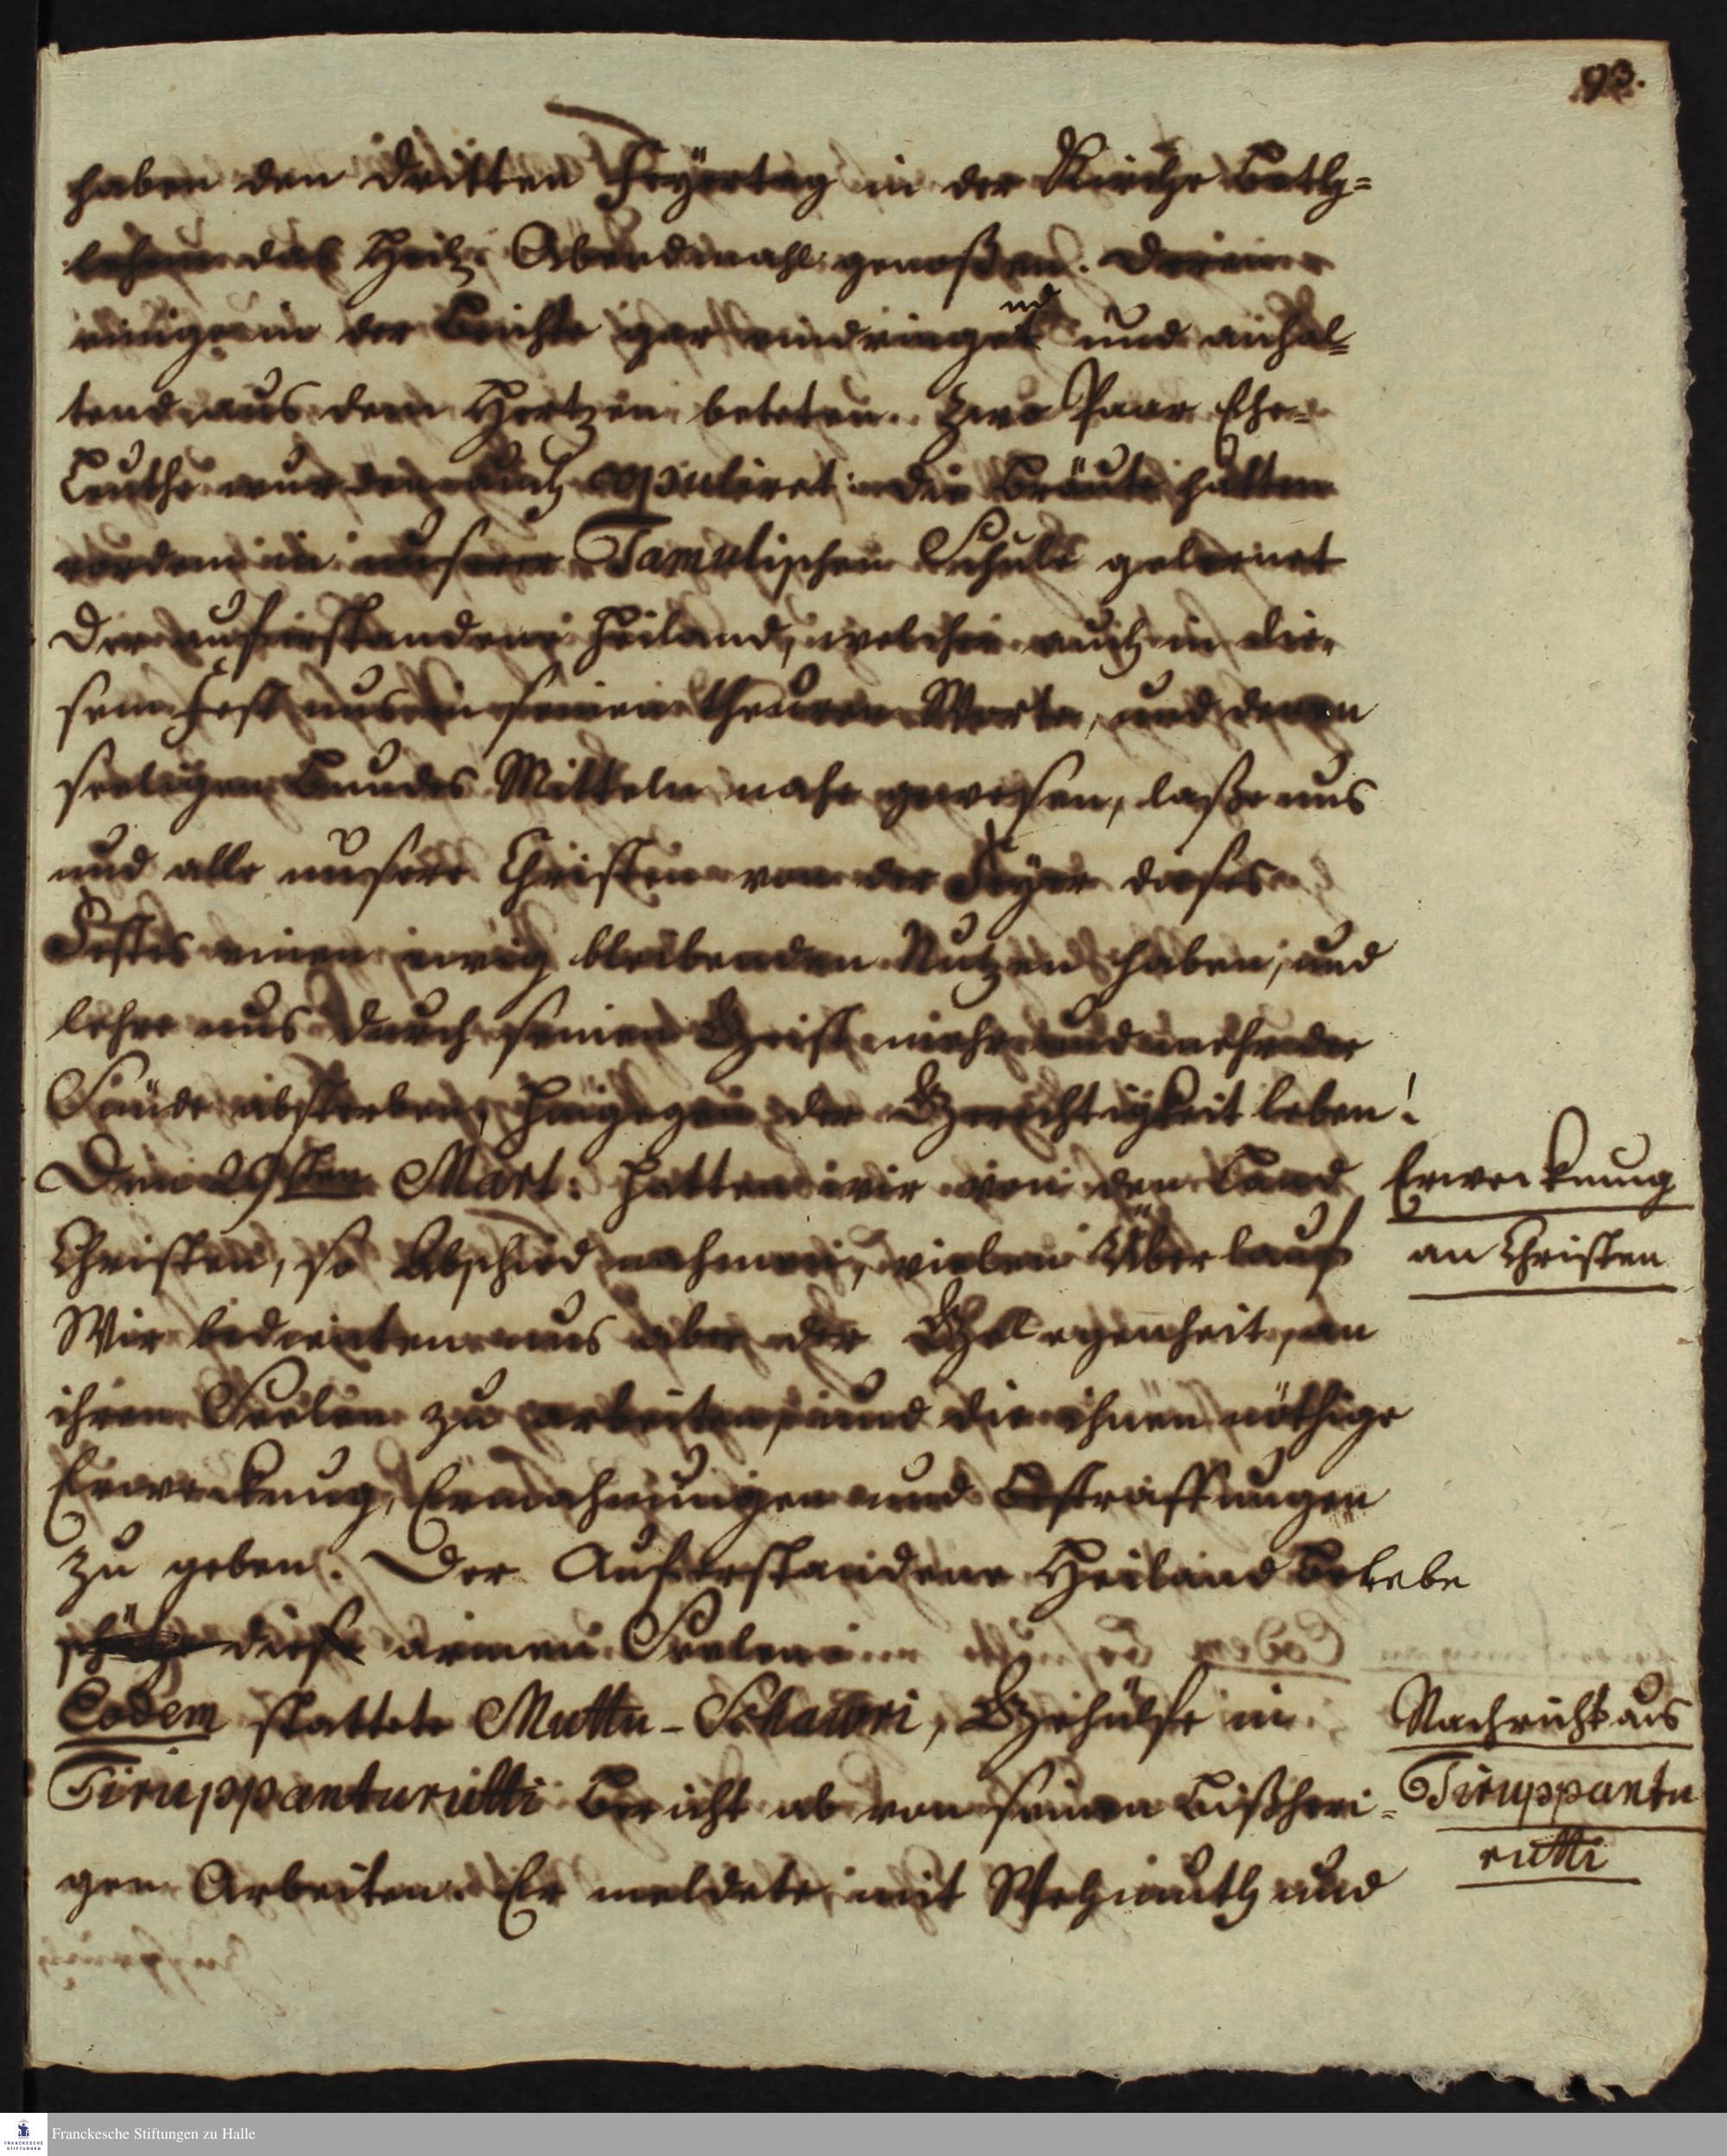 93.
haben den dritten Feyertag in der Kirche Beth-
lehem das Heil. Abendmahl genoßen. Davon
einige in der Beichte gar eindringend und anhal-
tend aus dem Hertzen beteten. Zwo Paar Ehe-
Leuthe wurden auch copuliret: die Bräute hatten
vordem in unserer Tamulischen Schule gelernet
Der auferstandene Heiland, welcher auch in die-
sem Fest uns in seinem theuren Worte, und denen
seeligen Bundes Mitteln nahe gewesen, laße uns
und alle unsere Christen von der Feyer dieses
Festes einen ewig bleibenden Nutzen haben, und
lehre uns durch seinen Geist mehr und mehr der
Sünde absterben, hingegen der Gerechtigkeit leben!
Den 29sten Mart: hatten wir von den Land
Christen, so Abschied nahmen, vielen Überlauf
Erweckung
an Christen
Wir bedienten uns aber der Gelegenheit, an
ihren Seelen zu arbeiten, und die ihnen nöthige
Erweckung, Ermahnungen und Bestraffungen
zu geben. Der Auferstandene Heiland belebe
diese armen Seelen
Eodem stattete Muttu-Schawri, Gehülfe in
Tiruppanturutti Bericht ab von seinen bißheri-
gen Arbeiten. Er meldete mit Wehmuth und
Nachricht aus
Tiruppantu
rutti
Franckesche Stiftungen zu Halle